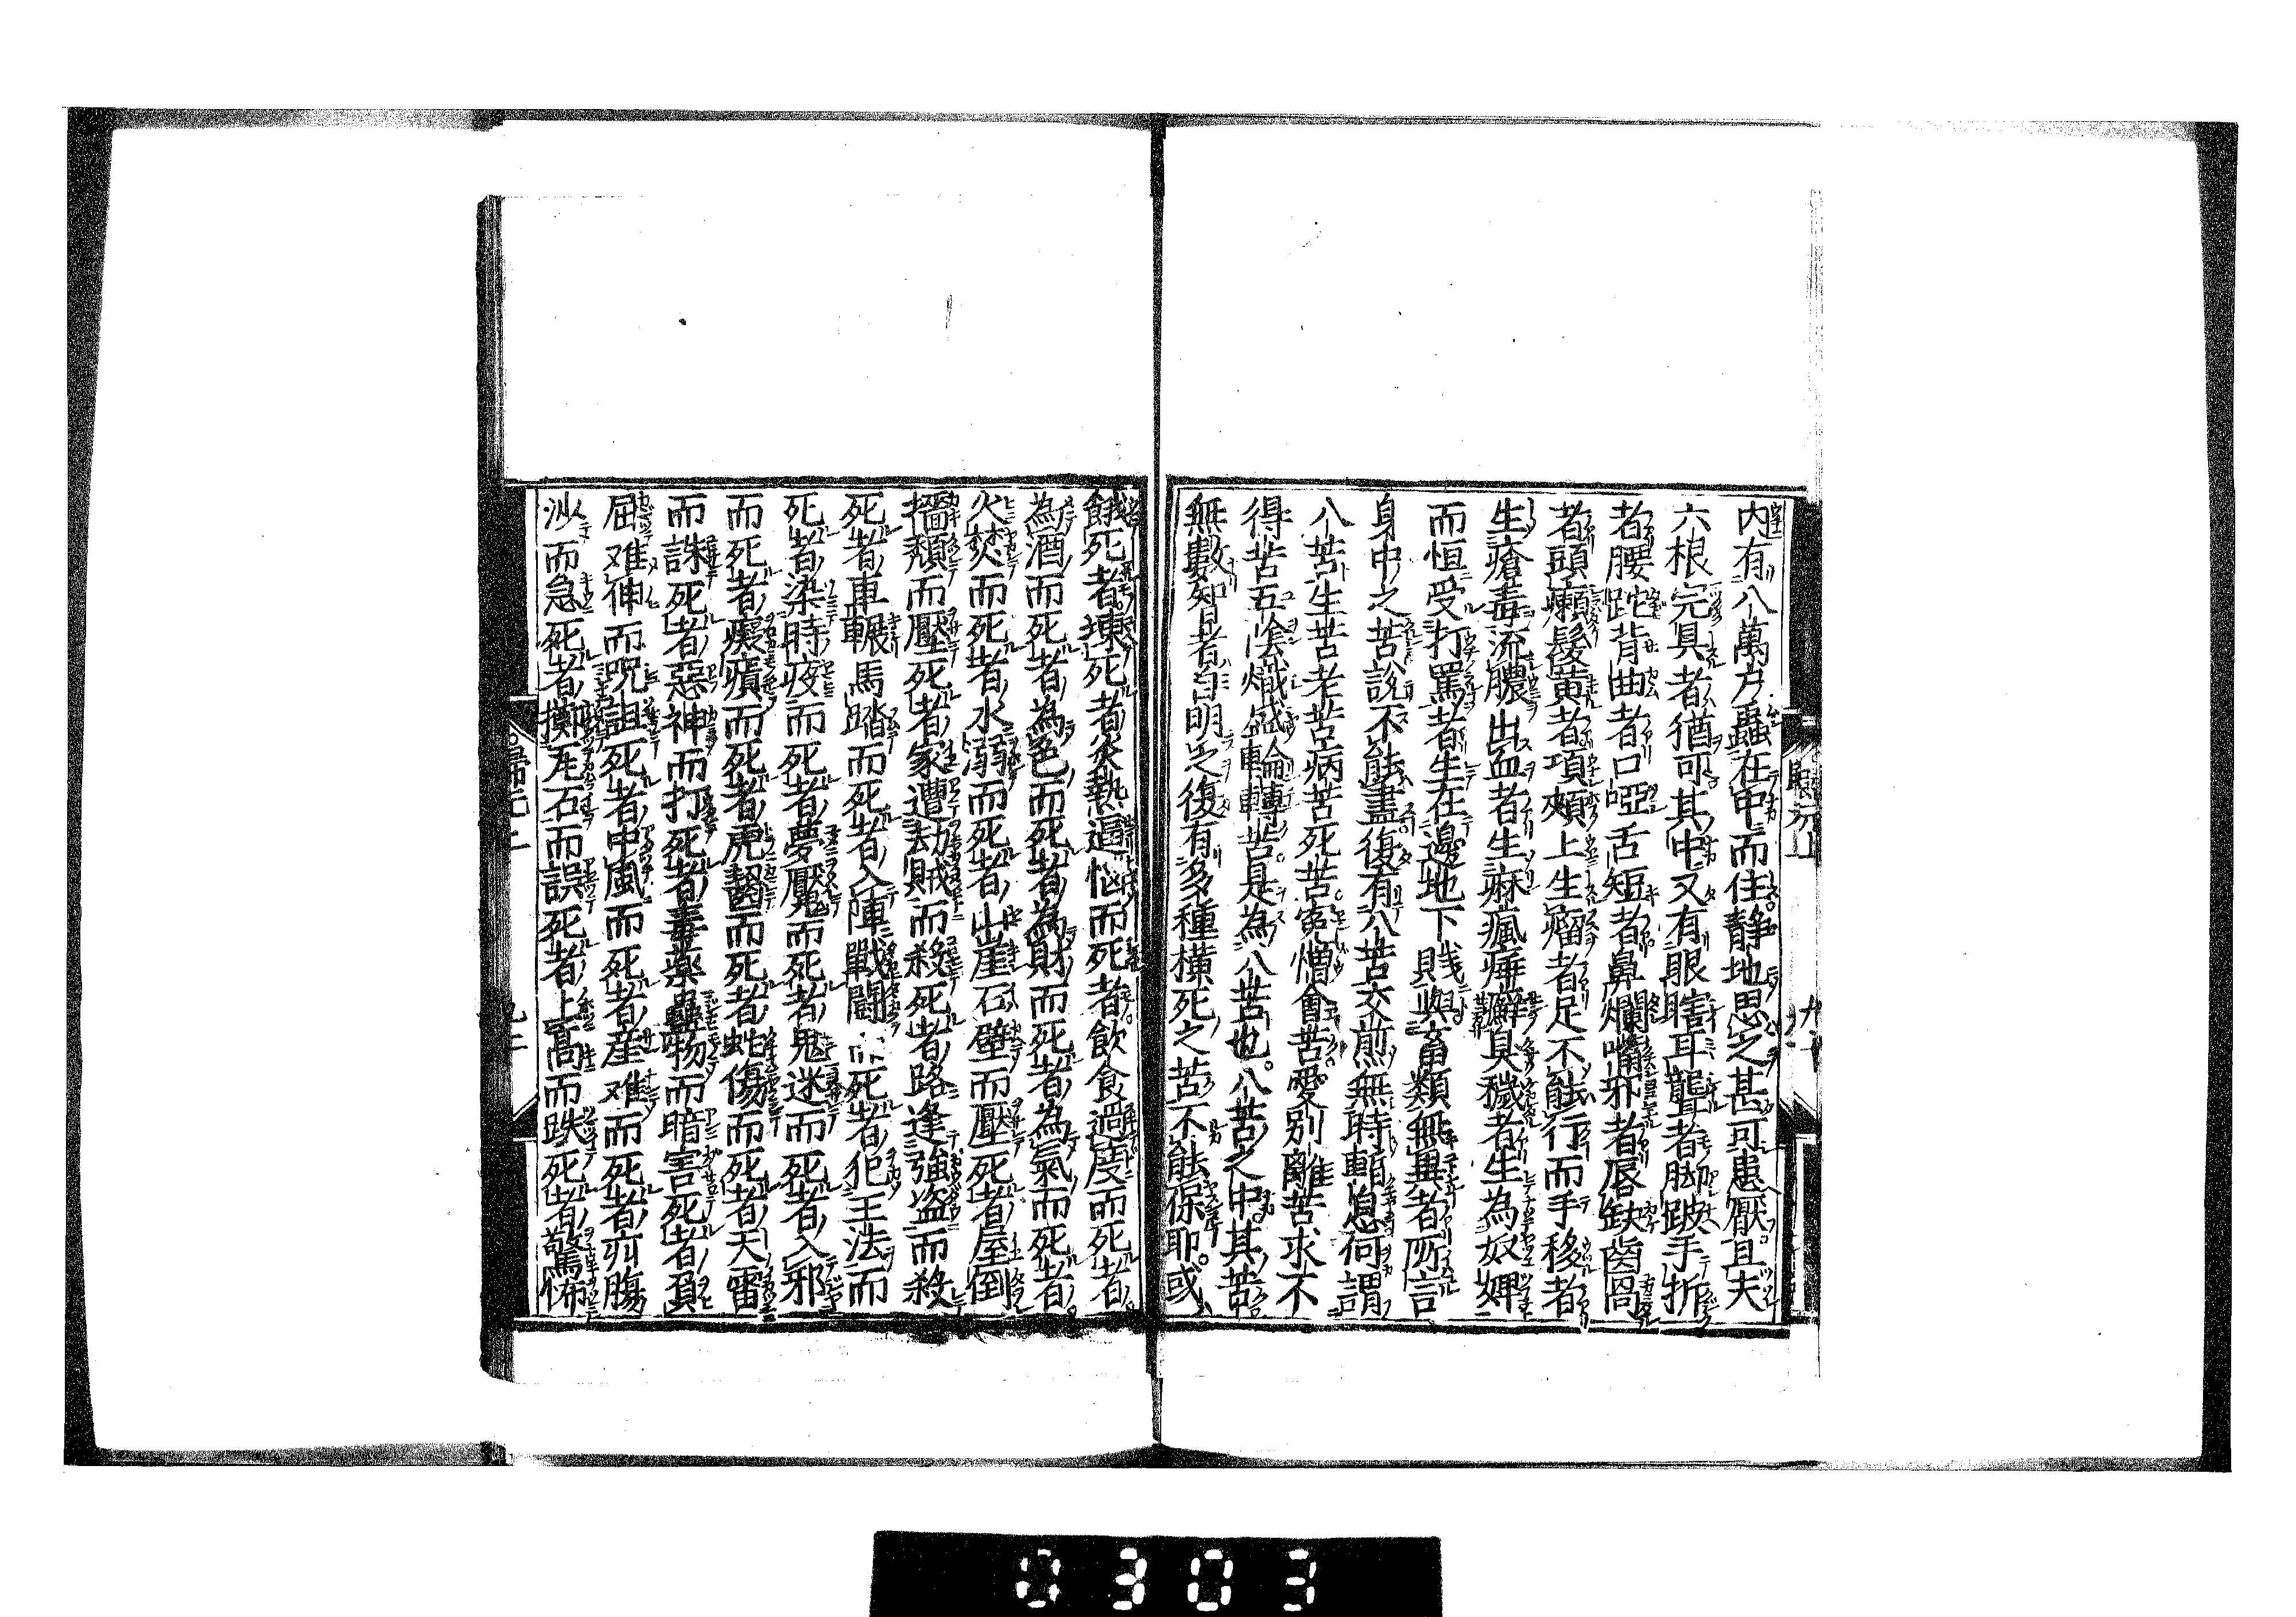 内有八萬户蟲在中而住静地思之甚可患厭且夫
六根完具者猶可其中又有眼瞎耳聾者脚跛手折
者腰跎背曲者口啞舌短者鼻爛嘴邪者唇缺齒咼
者頭癩髮黄者項頰上生瘤者足不能行而手移者
生瘡毒流膿出血者生麻瘋痤癬臭穢者生為奴婢
而恒受打罵者生在邊地下賎與畜類無異者所言
身中之苦說不能盡復有八苦交煎無時暫息何謂
八苦生苦老苦病苦死苦寃憎會苦愛别離苦求不
得苦五陰熾盛輪轉苦是為八苦也。八苦之中其苦
無數智者自明之復有多種横死之苦不能保耶。或
餓死者凍死者炎熱逼惱而死者飲食過度而死者
為酒而死者為色而死者為財而死者為氣而死者
火焚而死者水溺而死者出崖石壁而壓死者屋倒
墻頹而壓死者家遭劫賊而殺死者路逢強盗而殺
死者車輾馬踏而死者入陣戰鬪而死者犯王法而
死者染時疫而死者夢魘而死者鬼迷而死者入邪
而死者癡癀而死者虎𠿒而死者蛇傷而死者天雷
而誅死者惡神而打死者毒藥蠱物而暗害死者負
屈难伸而咒詛死者中風而死者産难而死者疔腸
沙而急死者擲瓦石而誤死者上高而跌死者驚怖
歸元二
九十